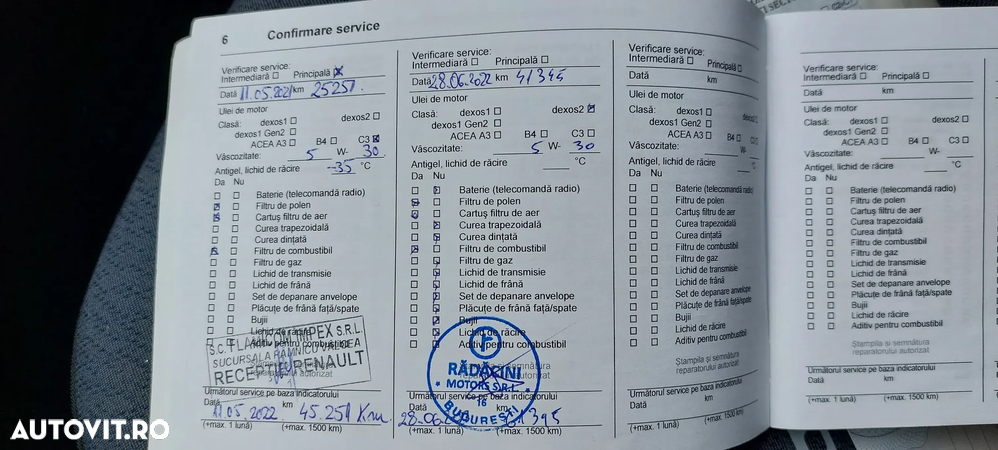 6 Confirmare service
Verificare service:
Intermediară Principală
Dată 11.05.2021 km 25251.
Ulei de motor
Clasă: dexos1 dexos2
dexos1 Gen2
ACEA A3 B4 C3
Vâscozitate: 5 W- 30
Antigel, lichid de răcire -35 °C
Da Nu
Baterie (telecomandă radio)
Filtru de polen
Cartuş filtru de aer
Curea trapezoidală
Curea dinţată
Filtru de combustibil
Filtru de gaz
Lichid de transmisie
Lichid de frână
Set de depanare anvelope
Plăcuţe de frână faţă/spate
Bujii
Lichid de răcire
Aditiv pentru combustibil
S.C. IMPEX S.R.L.
SUCURSALA RAMNICU VALCEA
RECEPTIE RENAULT
Următorul service pe baza indicatorului
Dată km
11.05.2022 45.251 Km
(+max. 1 lună) (+max. 1500 km)
Verificare service:
Intermediară Principală
Dată 28.06.2022 km 41345
Ulei de motor
Clasă: dexos1 dexos2
dexos1 Gen2
ACEA A3 B4 C3
Vâscozitate: 5 W- 30
Antigel, lichid de răcire °C
Da Nu
Baterie (telecomandă radio)
Filtru de polen
Cartuş filtru de aer
Curea trapezoidală
Curea dinţată
Filtru de combustibil
Filtru de gaz
Lichid de transmisie
Lichid de frână
Set de depanare anvelope
Plăcuţe de frână faţă/spate
Bujii
Lichid de răcire
Aditiv pentru combustibil
RĂDĂCINI
MOTORS S.R.L.
16
BUCUREŞTI
Următorul service pe baza indicatorului
Dată
28.06
(+max. 1 lună) (+max. 1500 km)
Verificare service:
Intermediară Principală
Dată km
Ulei de motor
Clasă: dexos1
dexos1 Gen2
ACEA A3 B4
Vâscozitate: W-
Antigel, lichid de răcire °C
Da Nu
Baterie (telecomandă radio)
Filtru de polen
Cartuş filtru de aer
Curea trapezoidală
Curea dinţată
Filtru de combustibil
Filtru de gaz
Lichid de transmisie
Lichid de frână
Set de depanare anvelope
Plăcuţe de frână faţă/spate
Bujii
Lichid de răcire
Aditiv pentru combustibil
Ştampila şi semnătura
reparatorului autorizat
Următorul service pe baza indicatorului
Dată km
(+max. 1 lună) (+max. 1500 km)
Verificare service:
Intermediară Principală
Dată km
Ulei de motor
Clasă: dexos1 dexos2
dexos1 Gen2
ACEA A3 B4 C3
Vâscozitate: W-
Antigel, lichid de răcire °C
Da Nu
Baterie (telecomandă radio)
Filtru de polen
Cartuş filtru de aer
Curea trapezoidală
Curea dinţată
Filtru de combustibil
Filtru de gaz
Lichid de transmisie
Lichid de frână
Set de depanare anvelope
Plăcuţe de frână faţă/spate
Bujii
Lichid de răcire
Aditiv pentru combustibil
Ştampila şi semnătura
reparatorului autorizat
Următorul service pe baza indicatorului
Dată km
(+max. 1 lună) (+max. 1500 km)
AUTOVIT.RO